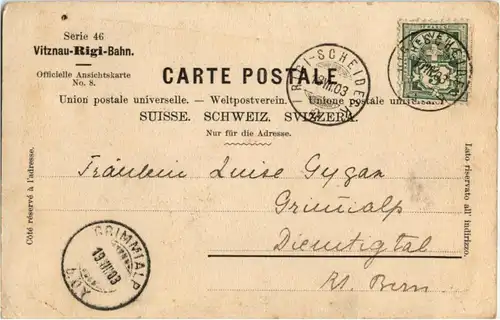 Serie 46
Vitznau-Rigi-Bahn.
Officielle Ansichtskarte
No. 8.
CARTE POSTALE
Union postale universelle. — Weltpostverein. — Unione postale universale.
SUISSE. SCHWEIZ. SVIZZERA.
Nur für die Adresse.
Côté réservé à l'adresse.
Lato riservato all' indirizzo.
RIGI-SCHEIDEGG
VIII.03
Fräulein Luise Gygax
Grimmialp
Diemtigtal
Kt. Bern.
GRIMMIALP
19.VIII.03